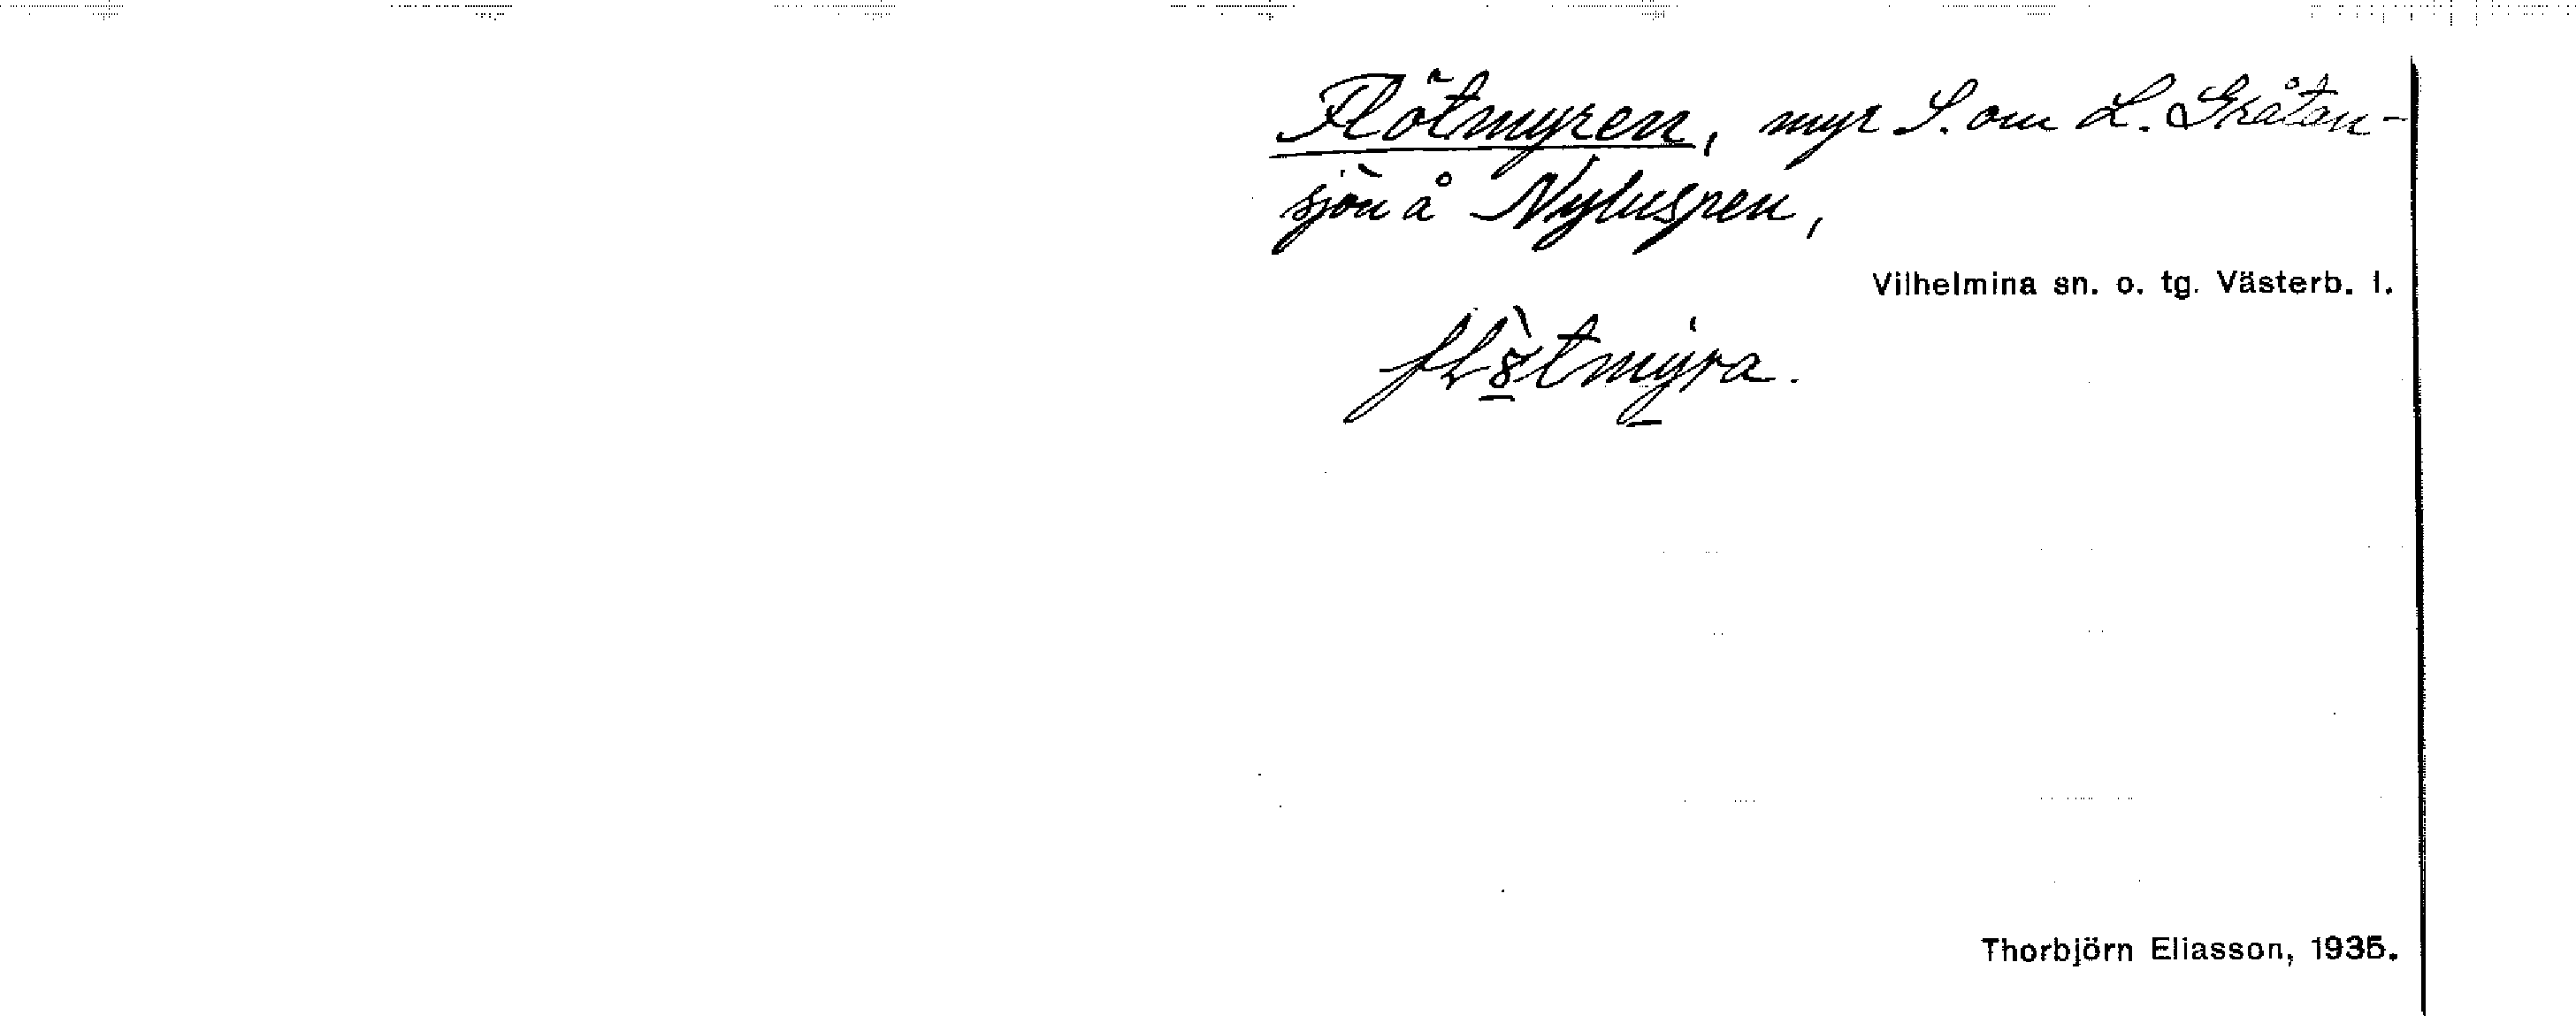 Flötmyren, myr S. om L. Gråtan-
sjön å Nyluspen,
Vilhelmina sn. o. tg. Västerb. l.
Thorbjörn Eliasson, 1935.